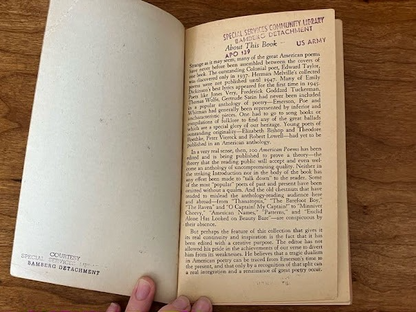 COURTESY
SPECIAL SERVICES
BAMBERG DETACHMENT
SPECIAL SERVICES COMMUNITY LIBRARY
BAMBERG DETACHMENT
About This Book
APO 139 US ARMY
Strange as it may seem, many of the great American poems
have never before been assembled between the covers of
one book. The outstanding Colonial poet, Edward Taylor,
was discovered only in 1937. Herman Melville's collected
poems were not published until 1947. Many of Emily
Dickinson's best lyrics appeared for the first time in 1945.
Poets like Jones Very, Frederick Goddard Tuckerman,
Thomas Wolfe, Gertrude Stein had never been included
in a popular anthology of poetry—Emerson, Poe and
Whitman had generally been represented by inferior and
uncharacteristic pieces. One had to go to song books or
compilations of folklore to find any of the great ballads
which are a special glory of our heritage. Young poets of
outstanding originality—Elizabeth Bishop and Theodore
Roethke, Peter Viereck and Robert Lowell—had yet to be
published in an American anthology.
In a very real sense, then, 100 American Poems has been
edited and is being published to prove a theory—the
theory that the reading public will accept and even wel-
come an anthology of uncompromising quality. Neither in
the striking Introduction nor in the body of the book has
any effort been made to "talk down" to the reader. Some
of the most "popular" poets of past and present have been
omitted without a qualm. And the old chestnuts that have
tended to mislead the anthology-reading audience here
and abroad—from "Thanatopsis," "The Barefoot Boy,"
"The Raven" and "O Captain! My Captain!" to "Miniver
Cheevy," "American Names," "Patterns," and "Euclid
Alone Has Looked on Beauty Bare"—are conspicuous by
their absence.
But perhaps the feature of this collection that gives it
its real continuity and inspiration is the fact that it has
been edited with a creative purpose. The editor has not
allowed his pride in the achievements of our verse to divert
him from its weaknesses. He believes that a tragic dualism
in American poetry can be traced from Emerson's time to
the present, and that only by a recognition of that split can
a real integration and a renaissance of great poetry occur.